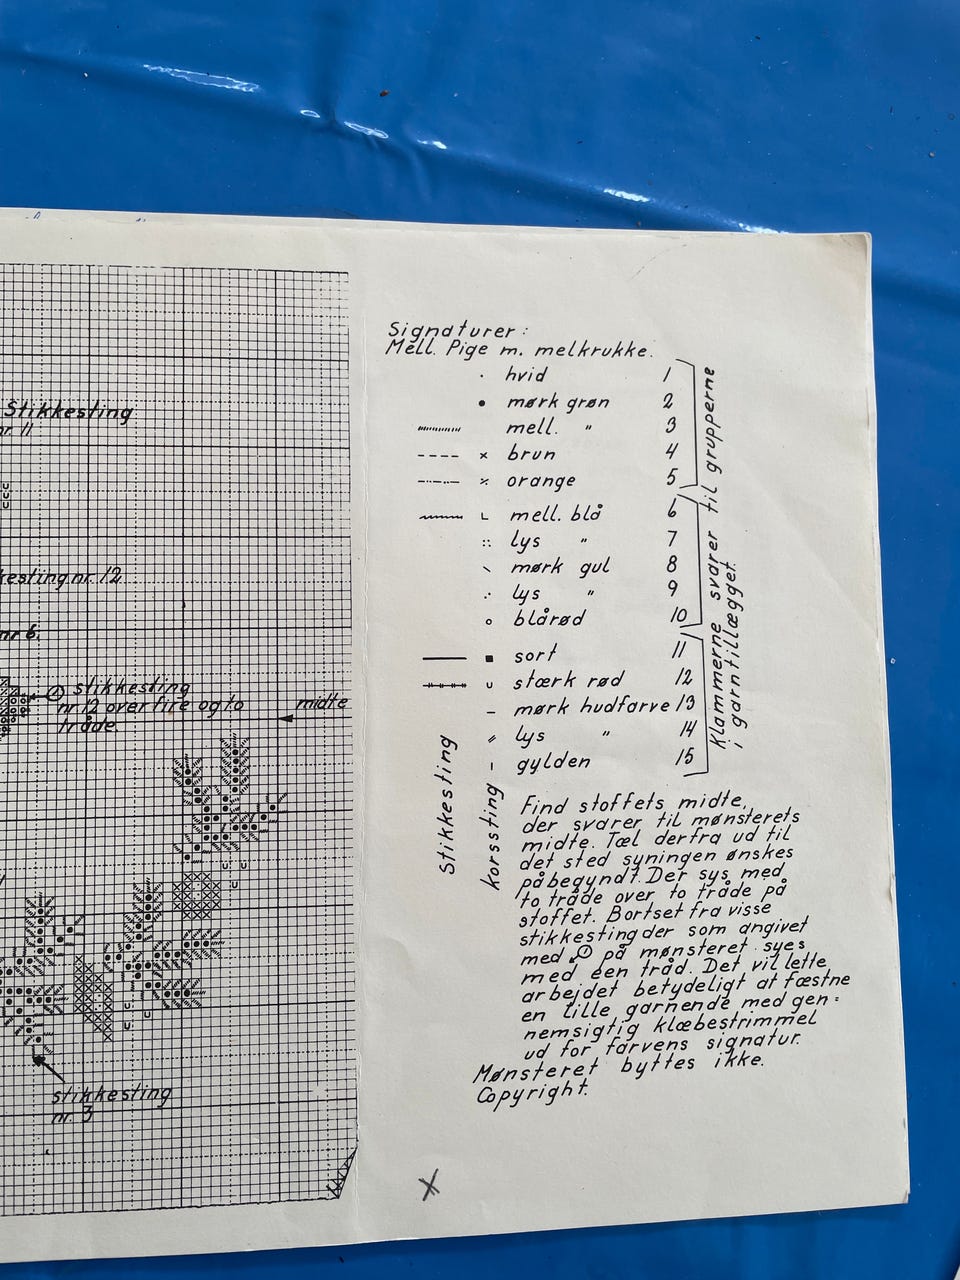 Stikkesting
nr. 11
kesting nr. 12
nr 6.
1 stikkesting
nr. 12 over fire og to
tråde.
midte
stikkesting
nr. 3
Signaturer:
Mell. Pige m. melkrukke.
hvid 1
mørk grøn 2
mell. " 3
brun 4
orange 5
mell. blå 6
lys " 7
mørk gul 8
lys " 9
blårød 10
sort 11
stærk rød 12
mørk hudfarve 13
lys " 14
gylden 15
Stikkesting
Korssting
Klammerne svarer til grupperne
i garntillægget.
Find stoffets midte,
der svarer til mønsterets
midte. Tæl derfra ud til
det sted syningen ønskes
påbegyndt. Der sys med
to tråde over to tråde på
stoffet. Bortset fra visse
stikkesting der som angivet
med 1 på mønsteret syes
med een tråd. Det vil lette
arbejdet betydeligt at fæstne
en lille garnende med gen=
nemsigtig klæbestrimmel
ud for farvens signatur.
Mønsteret byttes ikke.
Copyright.